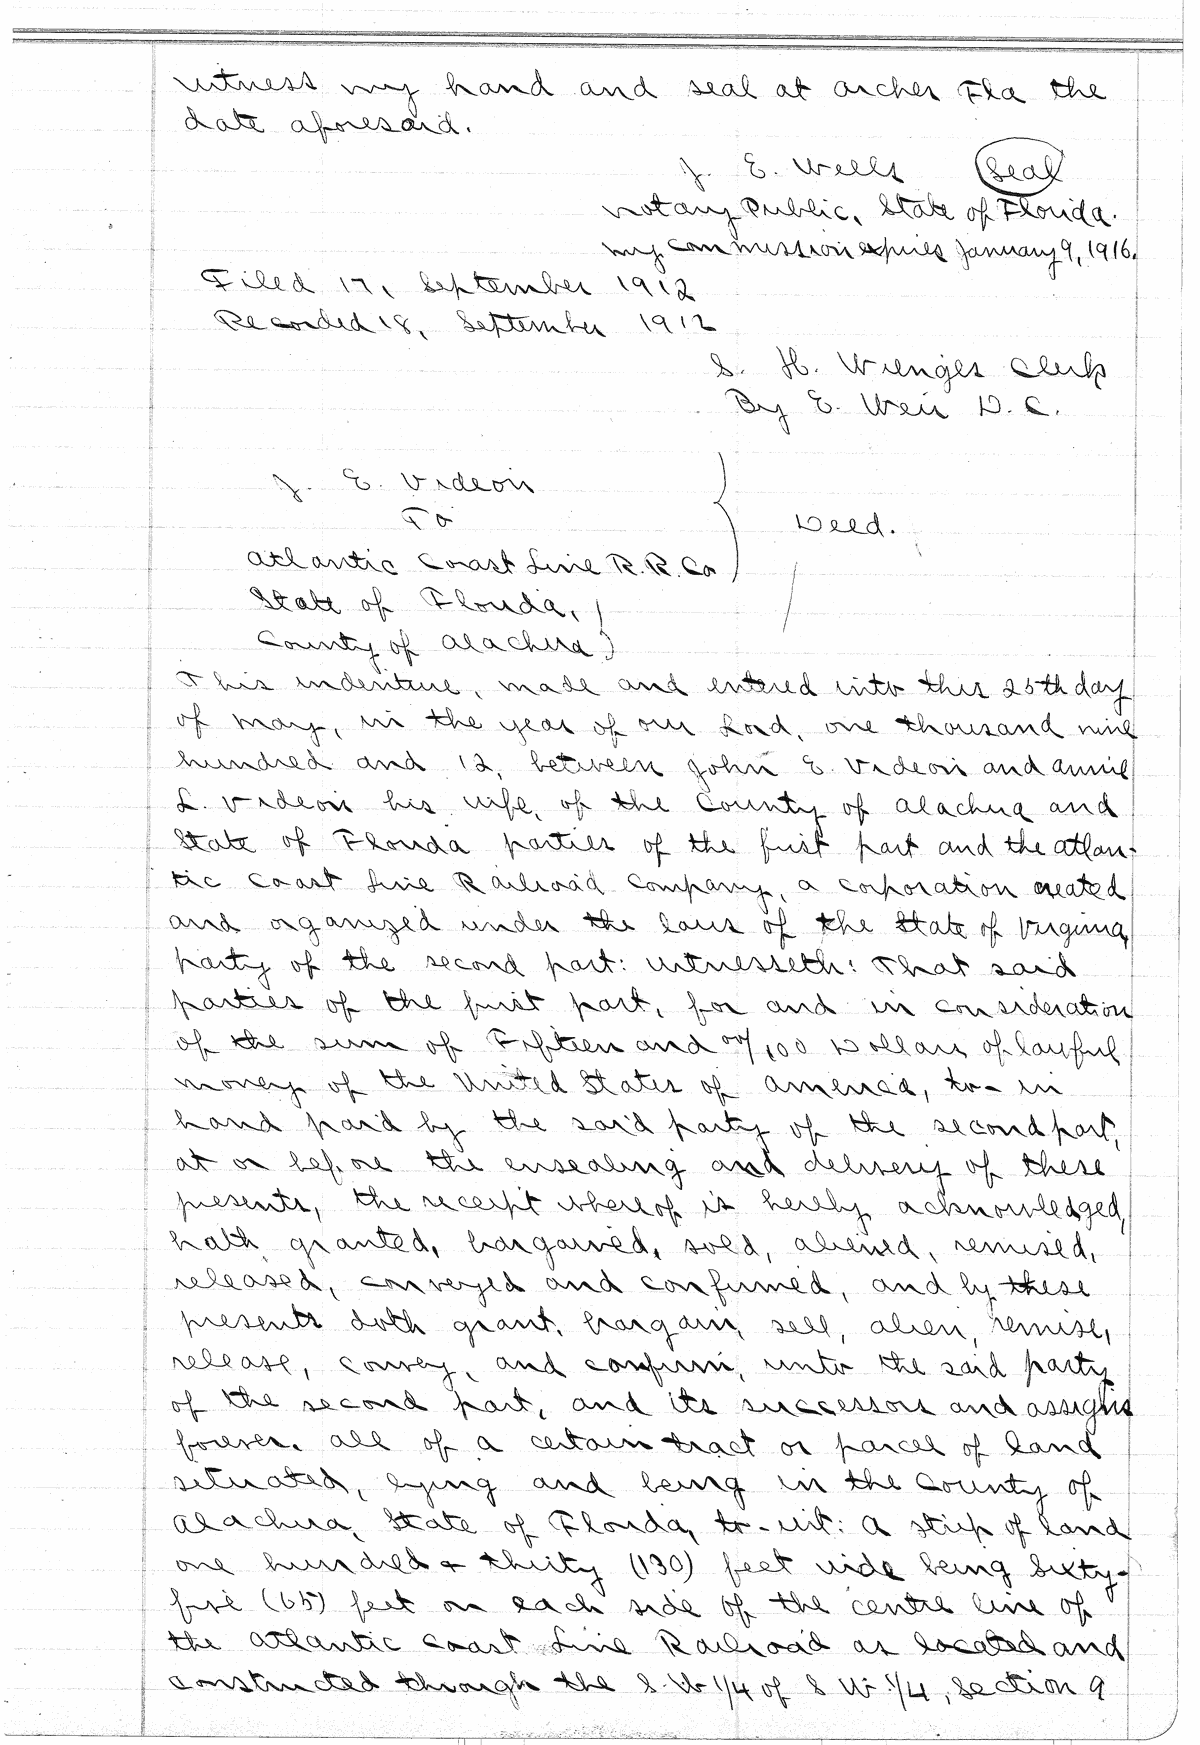 witness my hand and seal at archer Fla the
date aforesaid.
J. E. Wells Seal
notary Public, State of Florida.
my commission expires January 9, 1916.
Filed 17, September 1912
Recorded 18, September 1912
S. H. Wienges Clerk
By E. Weir D. C.
J. E. Videon
To
Deed.
atlantic Coast Line R. R. Co
State of Florida,
County of alachua
This indenture, made and entered into this 25th day
of may, in the year of our Lord, one thousand nine
hundred and 12, between John E. Videon and annie
L. Videon his wife, of the County of alachua and
State of Florida parties of the first part and the atlan-
tic Coast Line Railroad Company, a corporation created
and organized under the laws of the State of Virginia,
party of the second part: witnesseth: That said
parties of the first part, for and in consideration
of the sum of Fifteen and 00/100 Dollars of lawful
money of the United States of america, to- in
hand paid by the said party of the second part,
at or before the ensealing and delivery of these
presents, the receipt whereof is hereby acknowledged,
hath granted, bargained, sold, aliened, remised,
released, conveyed and confirmed, and by these
presents doth grant, bargain, sell, alien, remise,
release, convey, and confirm, unto the said party
of the second part, and its successors and assigns
forever. all of a certain tract or parcel of land
situated, lying and being in the County of
alachua, State of Florida, to-wit: A strip of land
one hundred & thirty (130) feet wide being Sixty-
five (65) feet on each side of the centre line of
the atlantic Coast Line Railroad as located and
constructed through the S. W 1/4 of S W. 1/4, Section 9